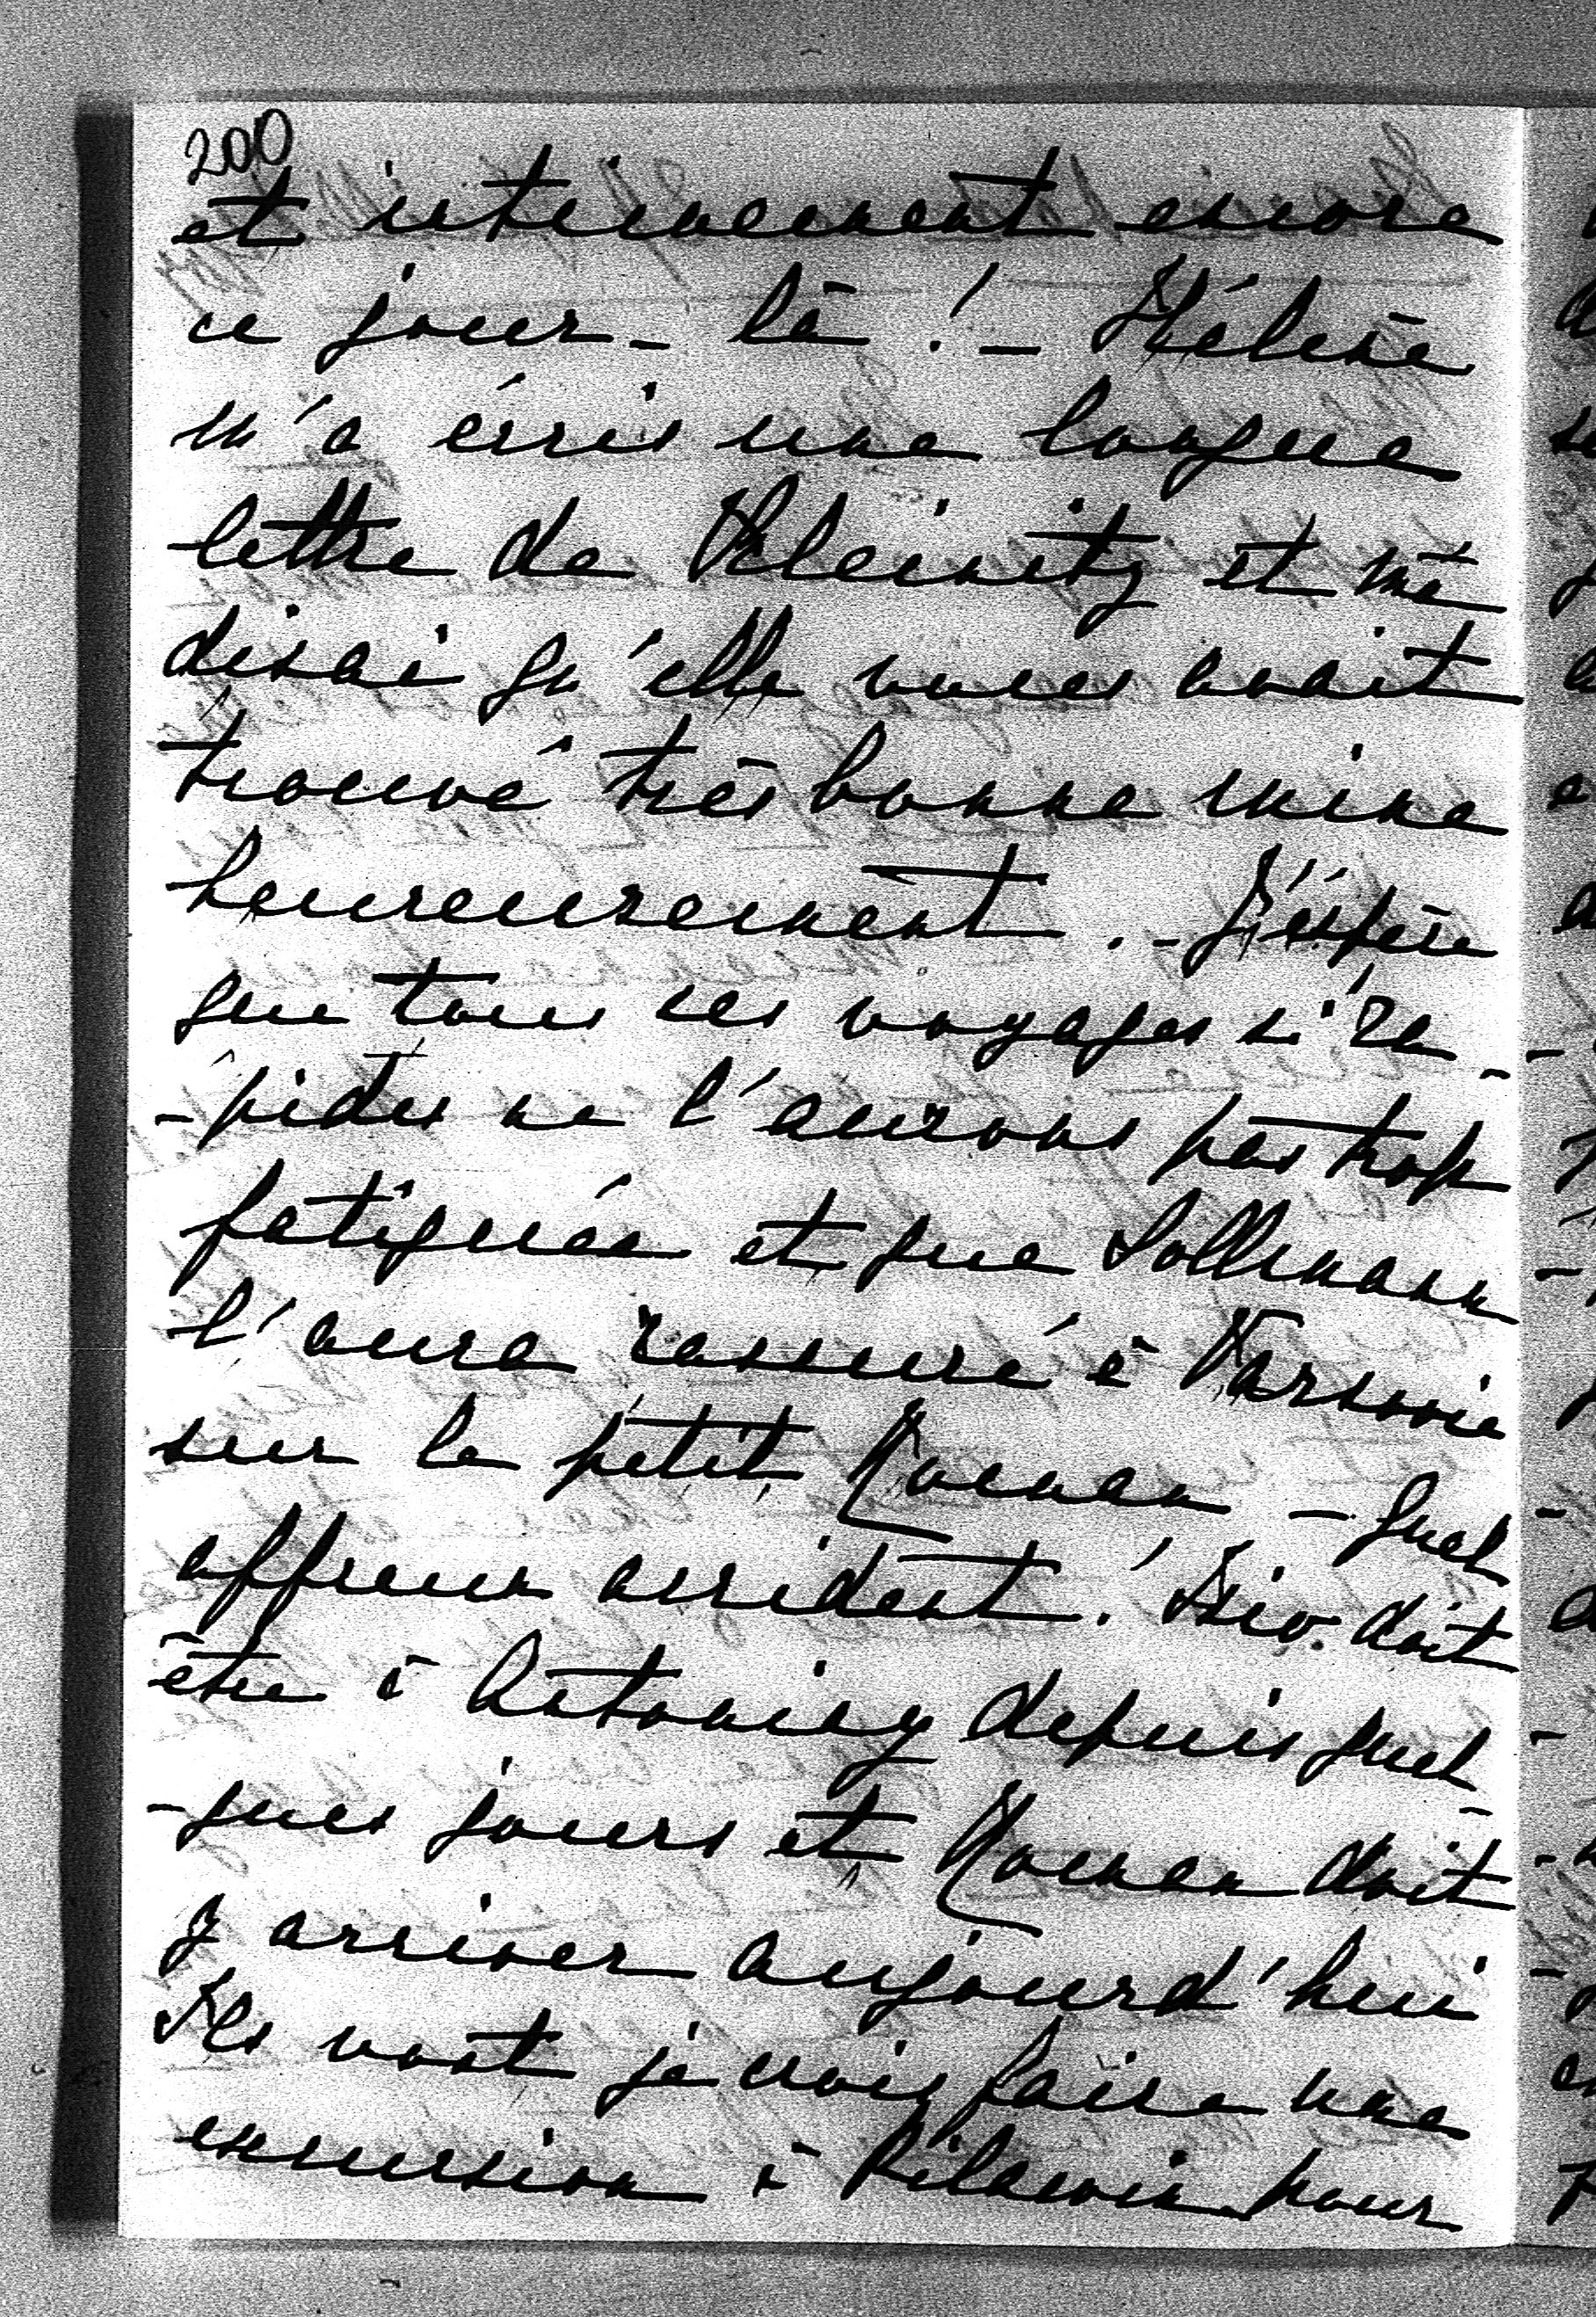 200
et intimement encore
ce jour-là! - Hélène
m'a écris une longue
lettre de Kleinitz et me
disai qu'elle vous avait
trouvé très bonne mine
heureusement. - J'éspère
que tous ces voyages si ra-
-pides ne l'aurons pas trop
fatiguée et que Sollmann
l'aura rassuré à Varsovie
sur le petit Roman - quel
affreux accident! Bicio doit
être à Antoniny depuis quel-
-ques jours et Roman doit
y arriver aujourd'hui
Ils vont je crois faire une
excursion à Pilawin pour